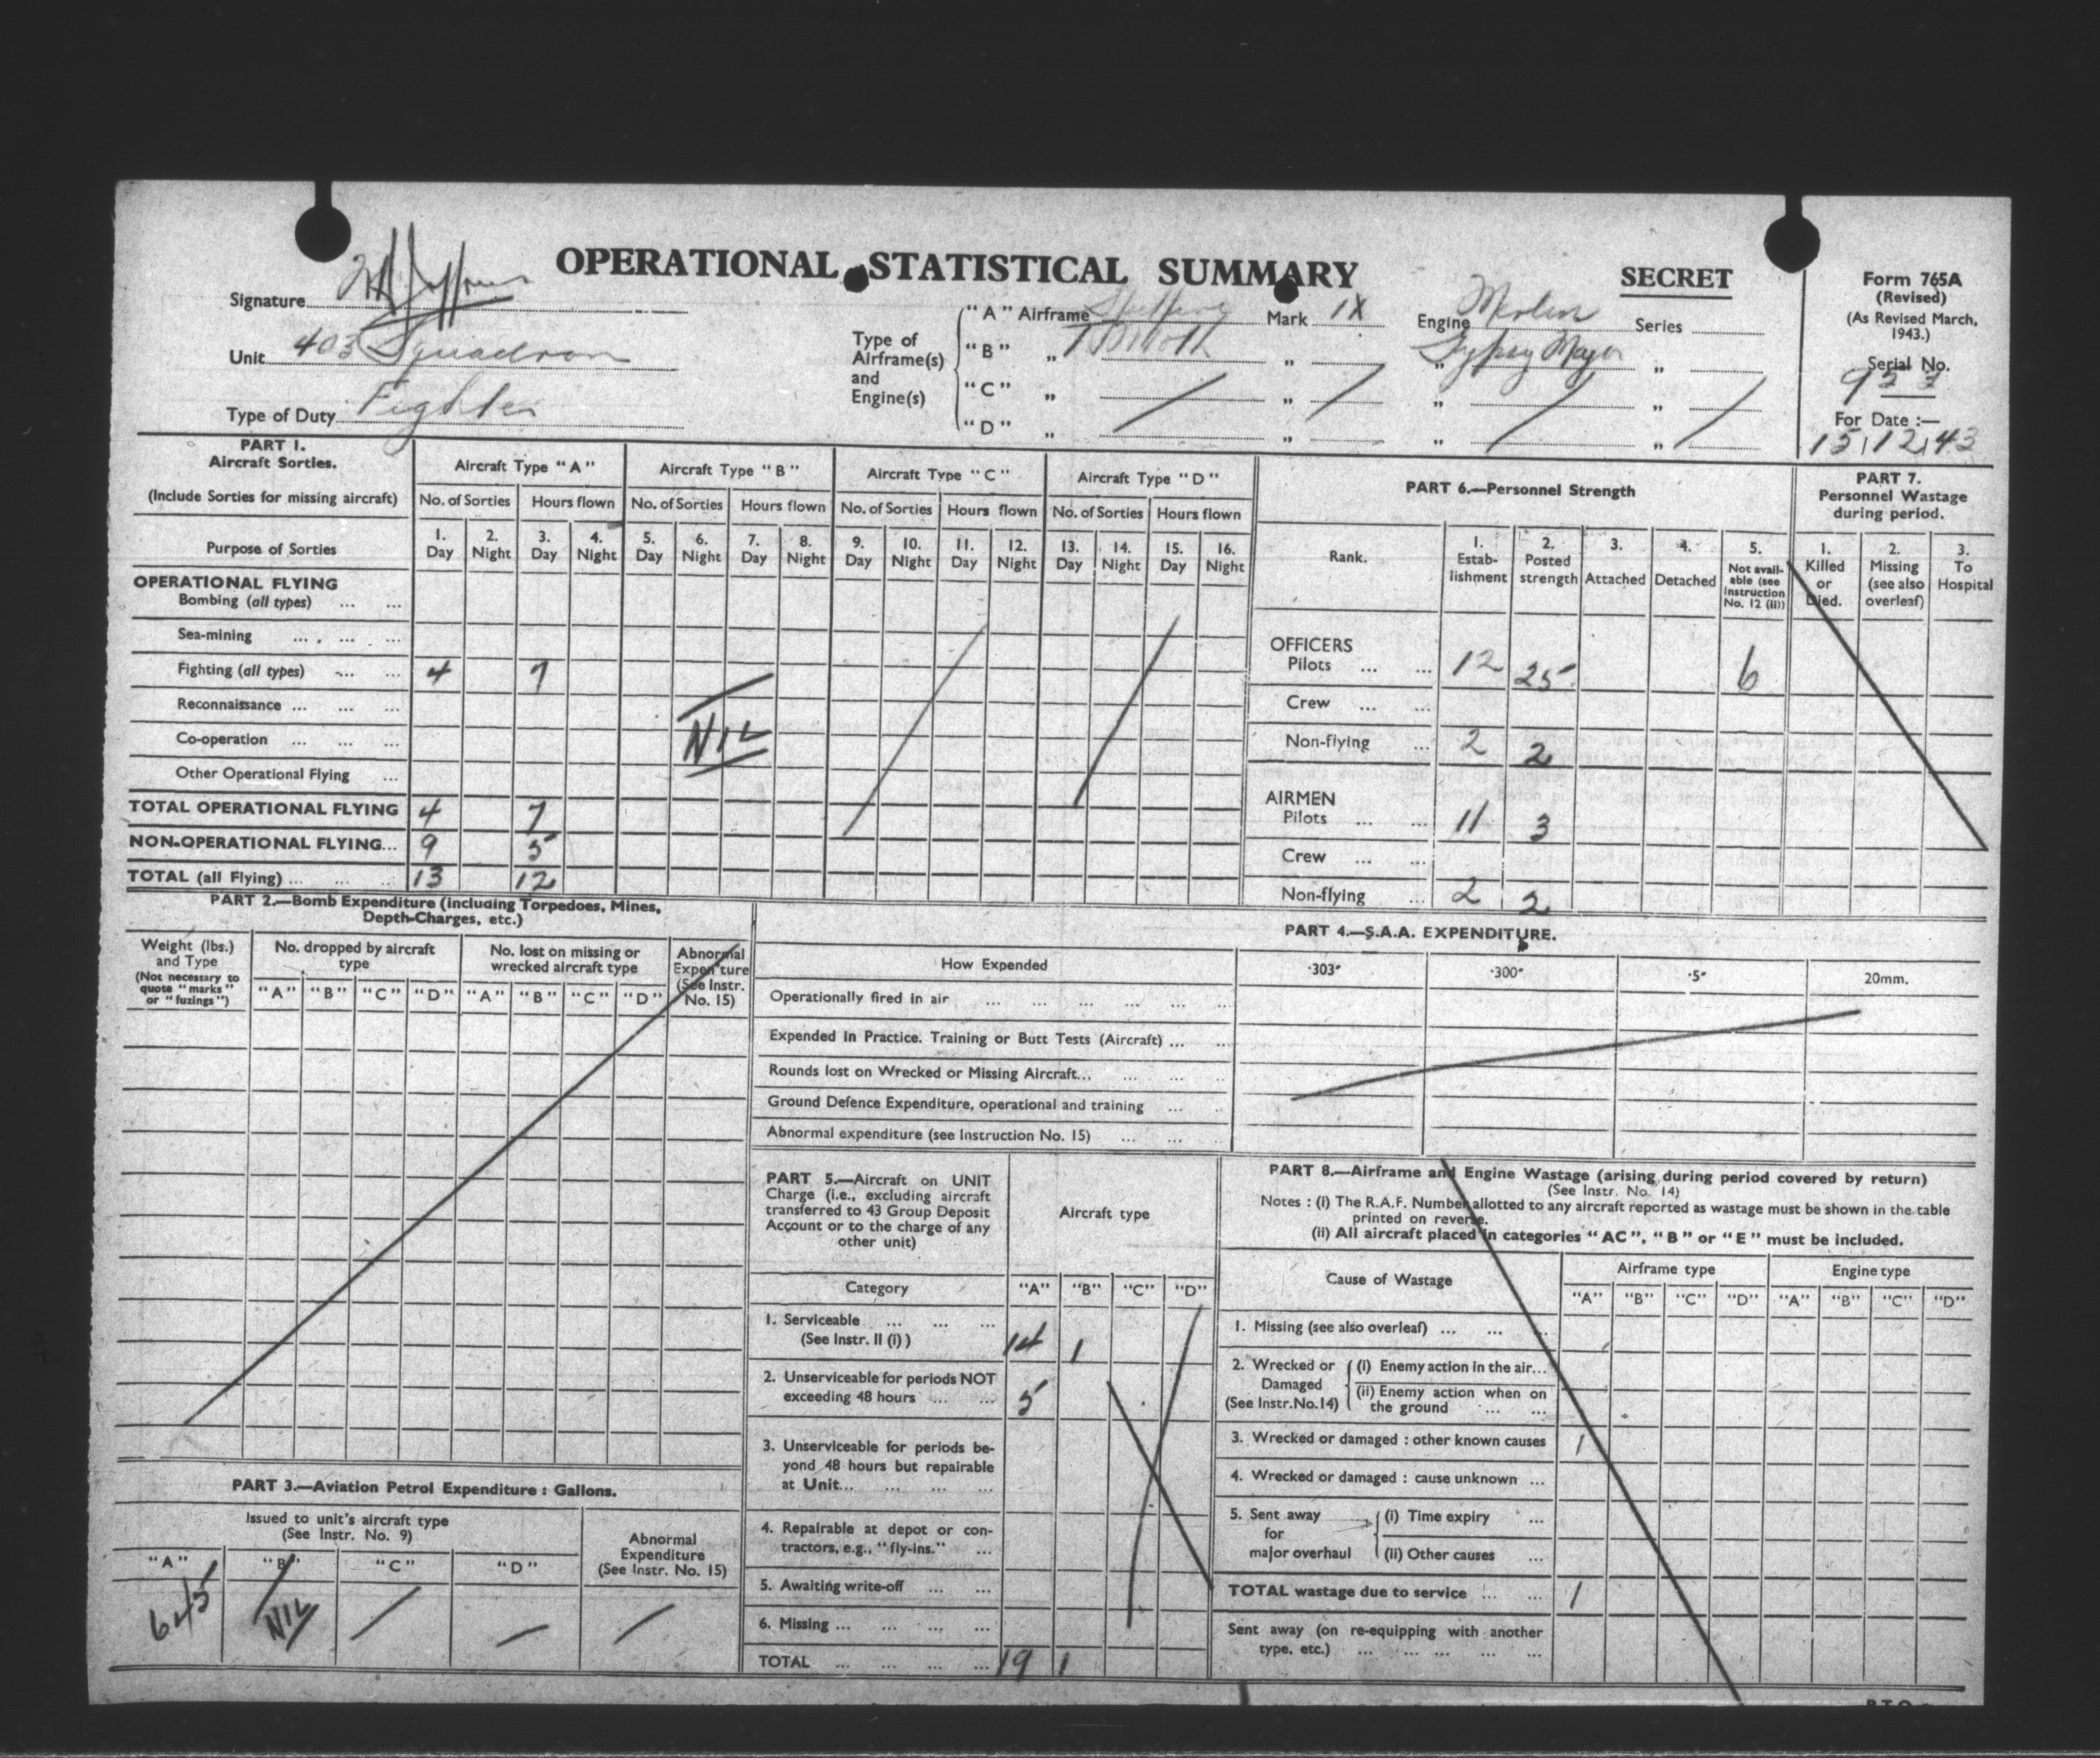 OPERATIONAL STATISTICAL SUMMARY
SECRET
Form 765A
(Revised)
(As Revised March, 1943.)
Serial No.
For Date :— 15/12/43
Signature
Unit 403 Squadron
Type of Duty Fighter
Type of Airframe(s) and Engine(s)
"A" Airframe Spitfire Mark IX Engine Merlin Series
"B" „ T Moth „ „ Gypsy Major „
"C" „ / „ / „ / „ /
"D" „ „ „ „
PART 1.
Aircraft Sorties.
(Include Sorties for missing aircraft)
Aircraft Type "A" Aircraft Type "B" Aircraft Type "C" Aircraft Type "D"
No. of Sorties Hours flown No. of Sorties Hours flown No. of Sorties Hours flown No. of Sorties Hours flown
Purpose of Sorties
1. Day 2. Night 3. Day 4. Night 5. Day 6. Night 7. Day 8. Night 9. Day 10. Night 11. Day 12. Night 13. Day 14. Night 15. Day 16. Night
OPERATIONAL FLYING
Bombing (all types) ... ...
Sea-mining ... ... ...
Fighting (all types) ... ... 4 7
Reconnaissance ... ... ...
Co-operation ... ... ... NIL
Other Operational Flying ...
TOTAL OPERATIONAL FLYING 4 7
NON-OPERATIONAL FLYING... 9 5
TOTAL (all Flying) ... ... ... 13 12
PART 6.—Personnel Strength
Rank.
1. Estab-lishment
2. Posted strength
3. Attached
4. Detached
5. Not avail-able (see Instruction No. 12 (ii))
OFFICERS
Pilots ... ... 12 25 6
Crew ... ...
Non-flying ... 2 2
AIRMEN
Pilots ... ... 11 3
Crew ... ...
Non-flying ... 2 2
PART 7.
Personnel Wastage during period.
1. Killed or Died.
2. Missing (see also overleaf)
3. To Hospital
PART 2.—Bomb Expenditure (including Torpedoes, Mines, Depth-Charges, etc.)
Weight (lbs.) and Type
(Not necessary to quote "marks" or "fuzings")
No. dropped by aircraft type
No. lost on missing or wrecked aircraft type
Abnormal Expen'ture (See Instr. No. 15)
"A" "B" "C" "D" "A" "B" "C" "D"
PART 3.—Aviation Petrol Expenditure : Gallons.
Issued to unit's aircraft type
(See Instr. No. 9)
Abnormal Expenditure
(See Instr. No. 15)
"A" "B" "C" "D"
645 NIL / / /
PART 4.—S.A.A. EXPENDITURE.
How Expended ·303" ·300" ·5" 20mm.
Operationally fired in air ... ... ... ... ... ...
Expended in Practice. Training or Butt Tests (Aircraft) ... ...
Rounds lost on Wrecked or Missing Aircraft... ... ... ...
Ground Defence Expenditure, operational and training ... ...
Abnormal expenditure (see Instruction No. 15) ... ...
PART 5.—Aircraft on UNIT Charge (i.e., excluding aircraft transferred to 43 Group Deposit Account or to the charge of any other unit)
Aircraft type
Category "A" "B" "C" "D"
1. Serviceable ... ... ...
(See Instr. II (i) ) 14 1
2. Unserviceable for periods NOT exceeding 48 hours ... ... 5
3. Unserviceable for periods be-yond 48 hours but repairable at Unit... ... ... ...
4. Repairable at depot or con-tractors, e.g., "fly-ins." ...
5. Awaiting write-off ... ...
6. Missing ... ... ... ...
TOTAL ... ... ... ... 19 1
PART 8.—Airframe and Engine Wastage (arising during period covered by return)
(See Instr. No. 14)
Notes : (i) The R.A.F. Number allotted to any aircraft reported as wastage must be shown in the table printed on reverse.
(ii) All aircraft placed in categories "AC", "B" or "E" must be included.
Cause of Wastage
Airframe type Engine type
"A" "B" "C" "D" "A" "B" "C" "D"
1. Missing (see also overleaf) ... ... ...
2. Wrecked or Damaged (See Instr.No.14)
(i) Enemy action in the air...
(ii) Enemy action when on the ground ... ...
3. Wrecked or damaged : other known causes 1
4. Wrecked or damaged : cause unknown ...
5. Sent away for major overhaul
(i) Time expiry ...
(ii) Other causes ...
TOTAL wastage due to service ... ... 1
Sent away (on re-equipping with another type, etc.) ... ... ... ... ...
P.T.O.